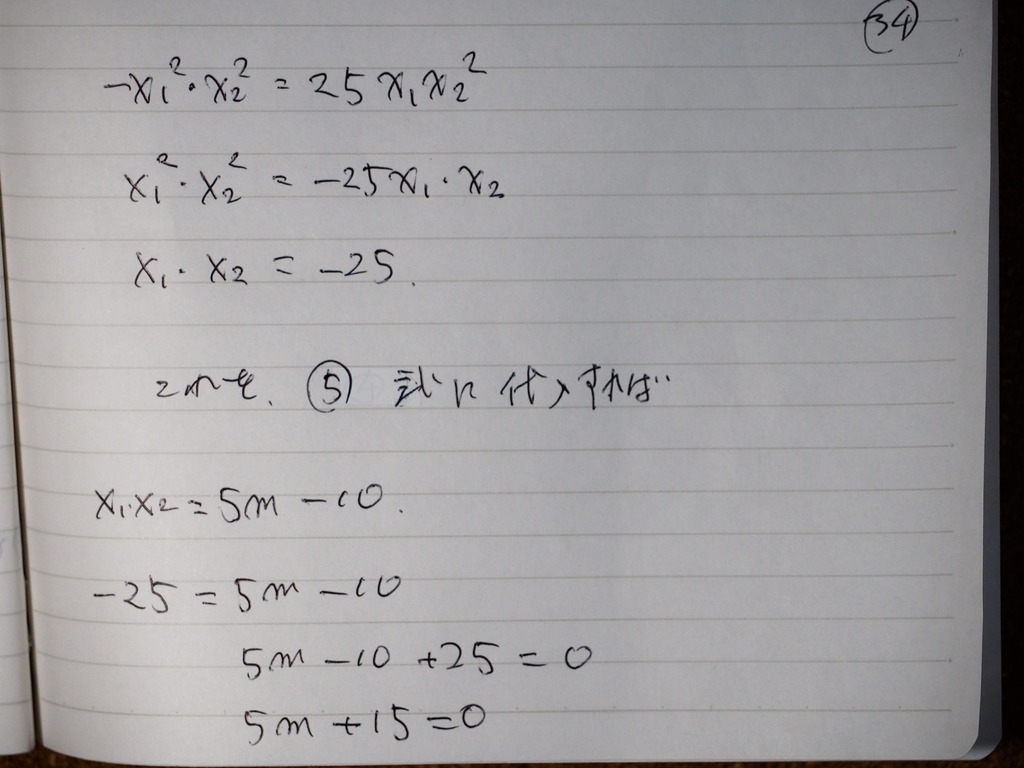 ㉞
-x₁²・x₂² = 25 x₁x₂²
x₁²・x₂² = -25x₁・x₂
x₁・x₂ = -25.
これを、⑤ 式に代入すれば
x₁・x₂ = 5m - 10.
-25 = 5m - 10
5m - 10 + 25 = 0
5m + 15 = 0